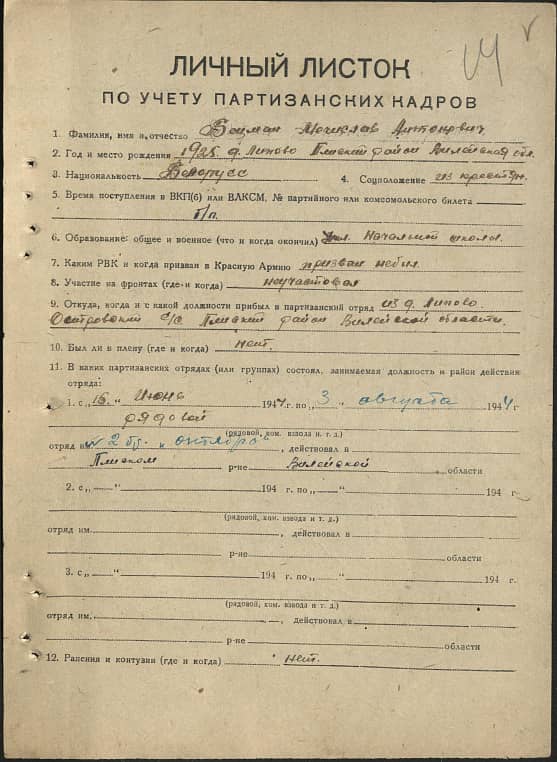 ЛИЧНЫЙ ЛИСТОК
ПО УЧЕТУ ПАРТИЗАНСКИХ КАДРОВ
1. Фамилия, имя и отчество Бойман Мечислав Антонович
2. Год и место рождения 1925 д. Липово Плиский район Вилейская обл.
3. Национальность Белорусс 4. Соцположение из крестьян
5. Время поступления в ВКП(б) или ВЛКСМ, № партийного или комсомольского билета
б/п.
6. Образование: общее и военное (что и когда окончил) Начальной школы
7. Каким РВК и когда призван в Красную Армию призван небыл
8. Участие на фронтах (где и когда) неучаствовал
9. Откуда, когда и с какой должности прибыл в партизанский отряд из д. Липово
Островский с/с Плиский район Вилейской области.
10. Был ли в плену (где и когда) нет.
11. В каких партизанских отрядах (или группах) состоял, занимаемая должность и район действия
отряда:
1. с „16 “ Июня 1944 г. по „3 “ августа 1944 г
рядовой
(рядовой, ком. взвода и т. д.)
отряд им. 2 бр. „октябрь“, действовал в
Плиском р-не Вилейской области
2. с „ “ 194 г. по „ “ 194 г
(рядовой, ком. взвода и т. д.)
отряд им. , действовал в
р-не области
3. с „ “ 194 г. по „ “ 194 г.
(рядовой, ком. взвода и т. д.)
отряд им. , действовал в
р-не области
12. Ранения и контузии (где и когда) нет.